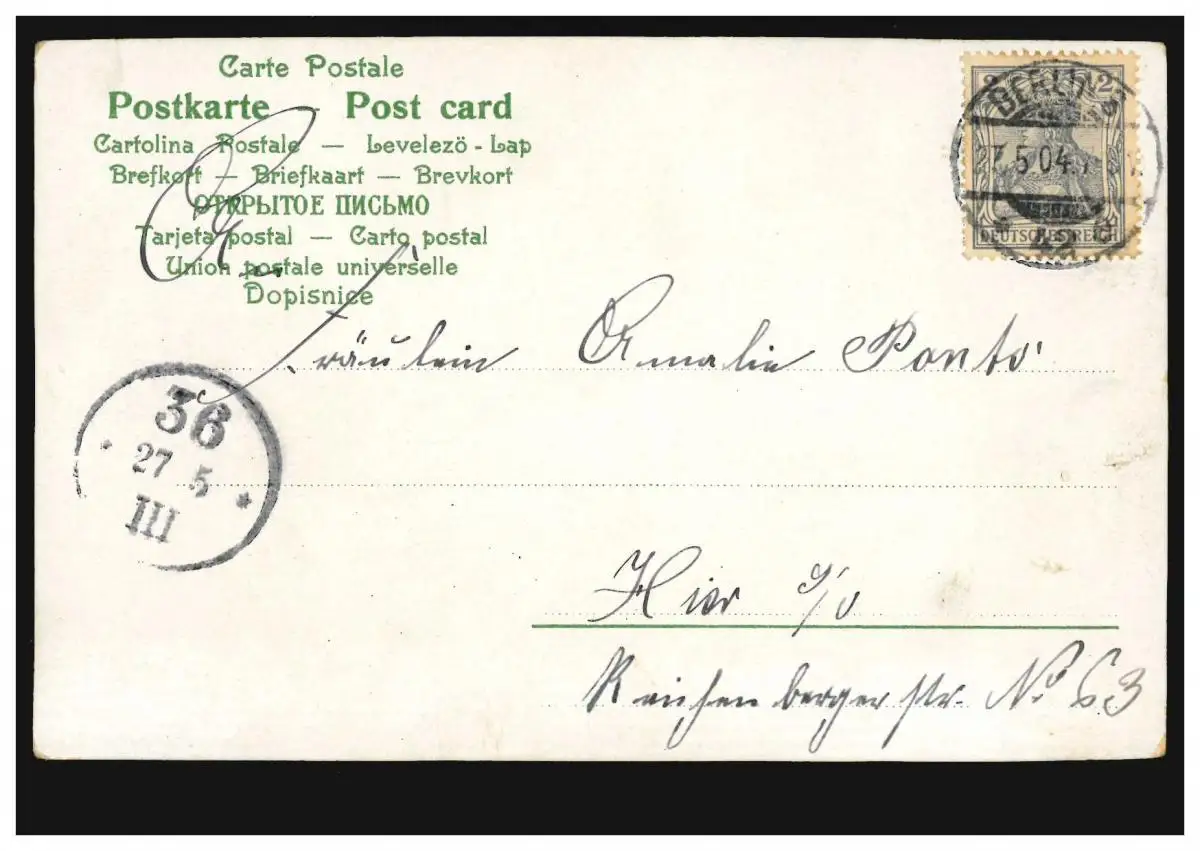 Carte Postale
Postkarte Post card
Cartolina Postale — Levelezö - Lap
Brefkort — Briefkaart — Brevkort
ОТКРЫТОЕ ПИСЬМО
Tarjeta postal — Carto postal
Union postale universelle
Dopisnice
2 2
BERLIN
5.04.
DEUTSCHES REICH
Fräulein Amalie Ponto
36
27 5
III
Hier S/O
Reichenbergerstr. No 63